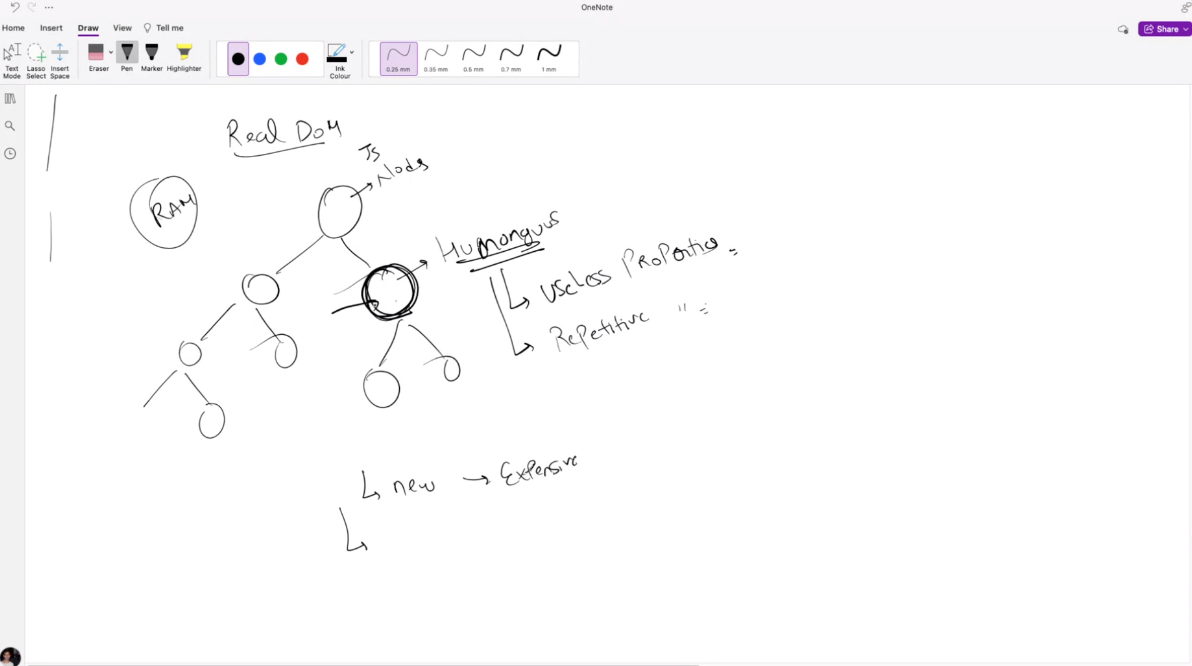 OneNote
Home Insert Draw View Tell me
Share
Text Mode
Lasso Select
Insert Space
Eraser
Pen
Marker
Highlighter
Ink Colour
0.25 mm
0.35 mm
0.5 mm
0.7 mm
1 mm
Real DOM
JS
Nodes
RAM
Humongus
Useless Properties
Repetitive "
new → Expensive